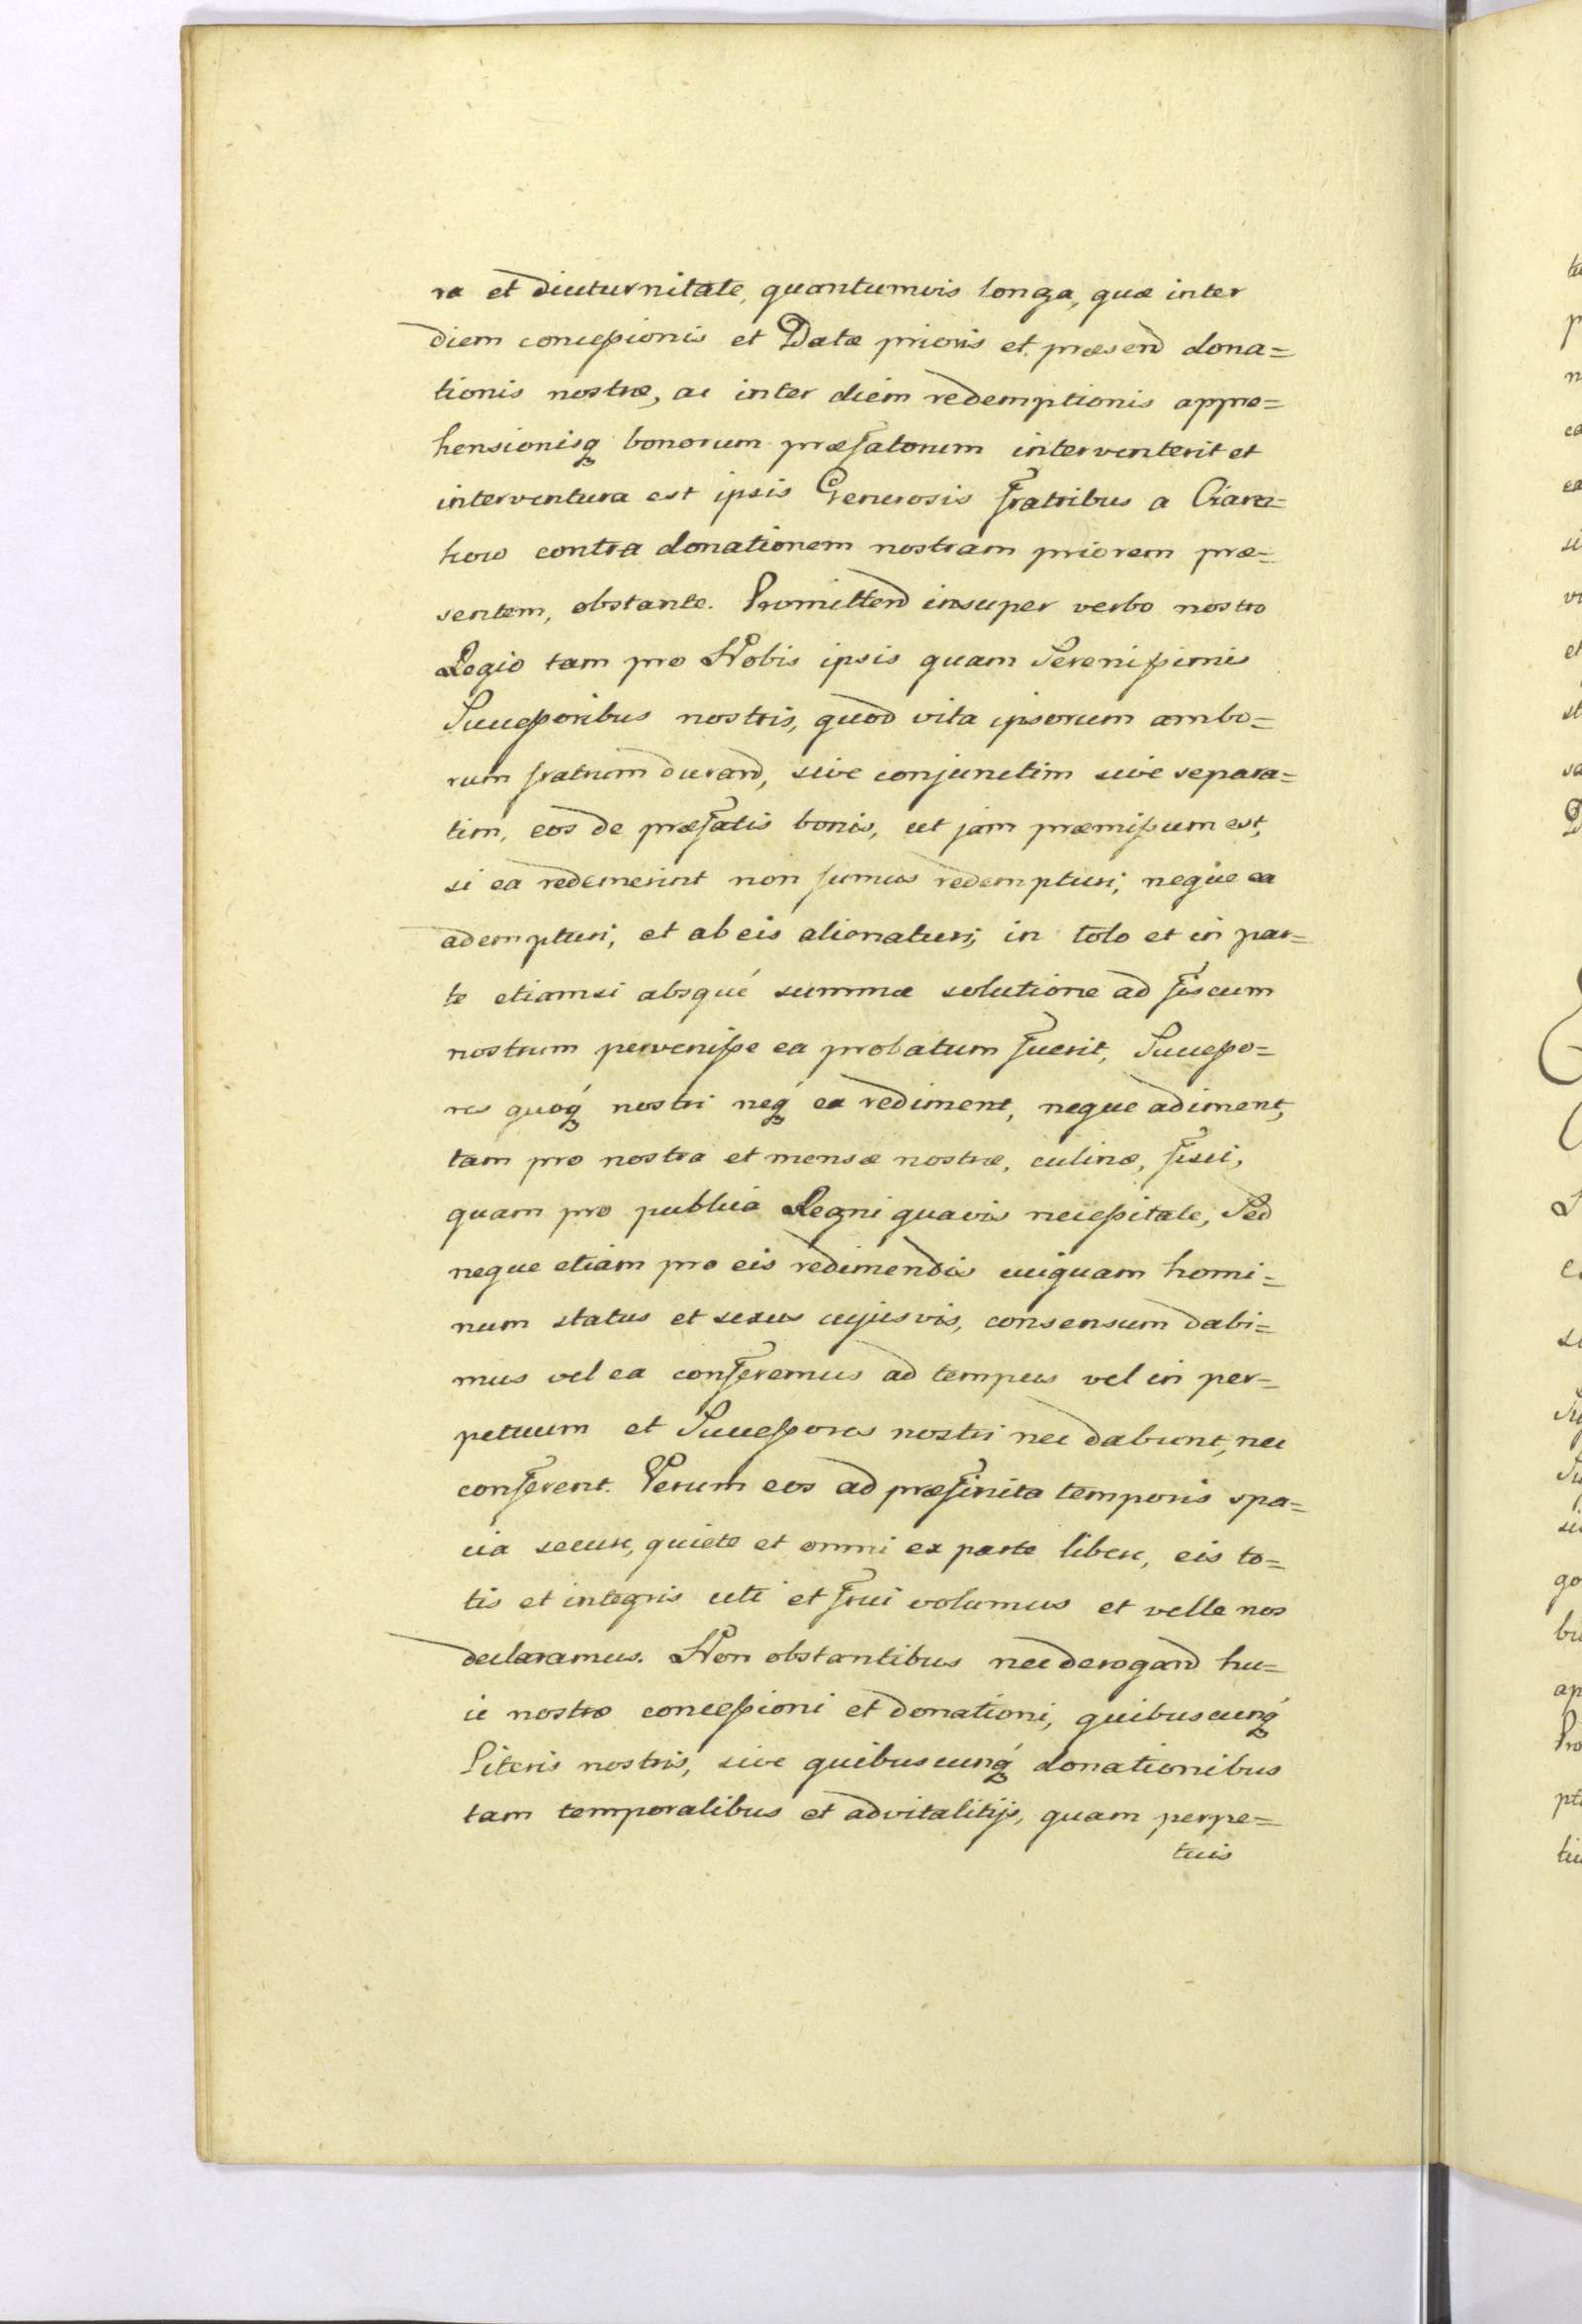 ra et diuturnitate, quantumvis longa, quæ inter
diem concessionis et Datæ prioris et præsend dona=
tionis nostræ, ac inter diem redemptionis appre=
hensionisq bonorum præfatorum interventerit et
interventura est ipsis Generosis fratribus a Ciara=
how contra donationem nostram priorem præ=
sentem, obstante. Promittend insuper verbo nostro
Regio tam pro Nobis ipsis quam Serenissimis
Successoribus nostris, quod vita ipsorum ambo=
rum fratrum durand, sive conjunctim sive separa=
tim, eos de præfatis bonis, ut jam præmissum est,
si ea redemerint non sumus redempturi, neque ea
adempturi, et ab eis alienaturi, in toto et in par=
te etiamsi absqué summæ solutione ad fiscum
nostrum pervenisse ea probatum fuerit, Successo=
res quoq́ nostri neq́ ea rediment, neque adiment,
tam pro nostra et mensæ nostræ, culinæ, fisci,
quam pro publica Regni quavis necessitate, Sed
neque etiam pro eis redimendis cuiquam homi=
num status et sexus cujusvis, consensum dabi=
mus vel ea conferemus ad tempus vel in per=
petuum et Successores nostri nec dabunt, nec
conferent. Verum eos ad præfinita temporis spa=
cia secure, quiete et omni ex parte libere, eis to=
tis et integris uti et frui volumus et velle nos
declaramus. Non obstantibus nec derogand hu=
ic nostræ concessioni et donationi, quibuscunq́
Literis nostris, sive quibuscunq́ donationibus
tam temporalibus et advitalitijs, quam perpe=
tuis